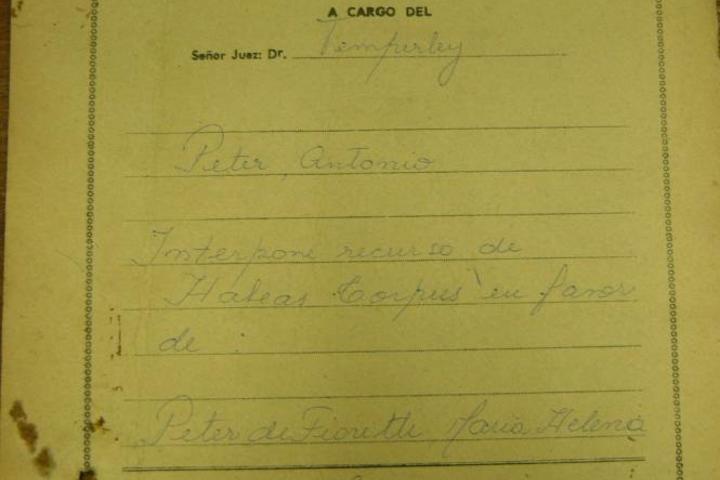 A CARGO DEL
Señor Juez: Dr. Temperley
Peter, Antonio
Interpone recurso de
Habeas Corpus en favor
de :
Peter de Fioretti Maria Helena